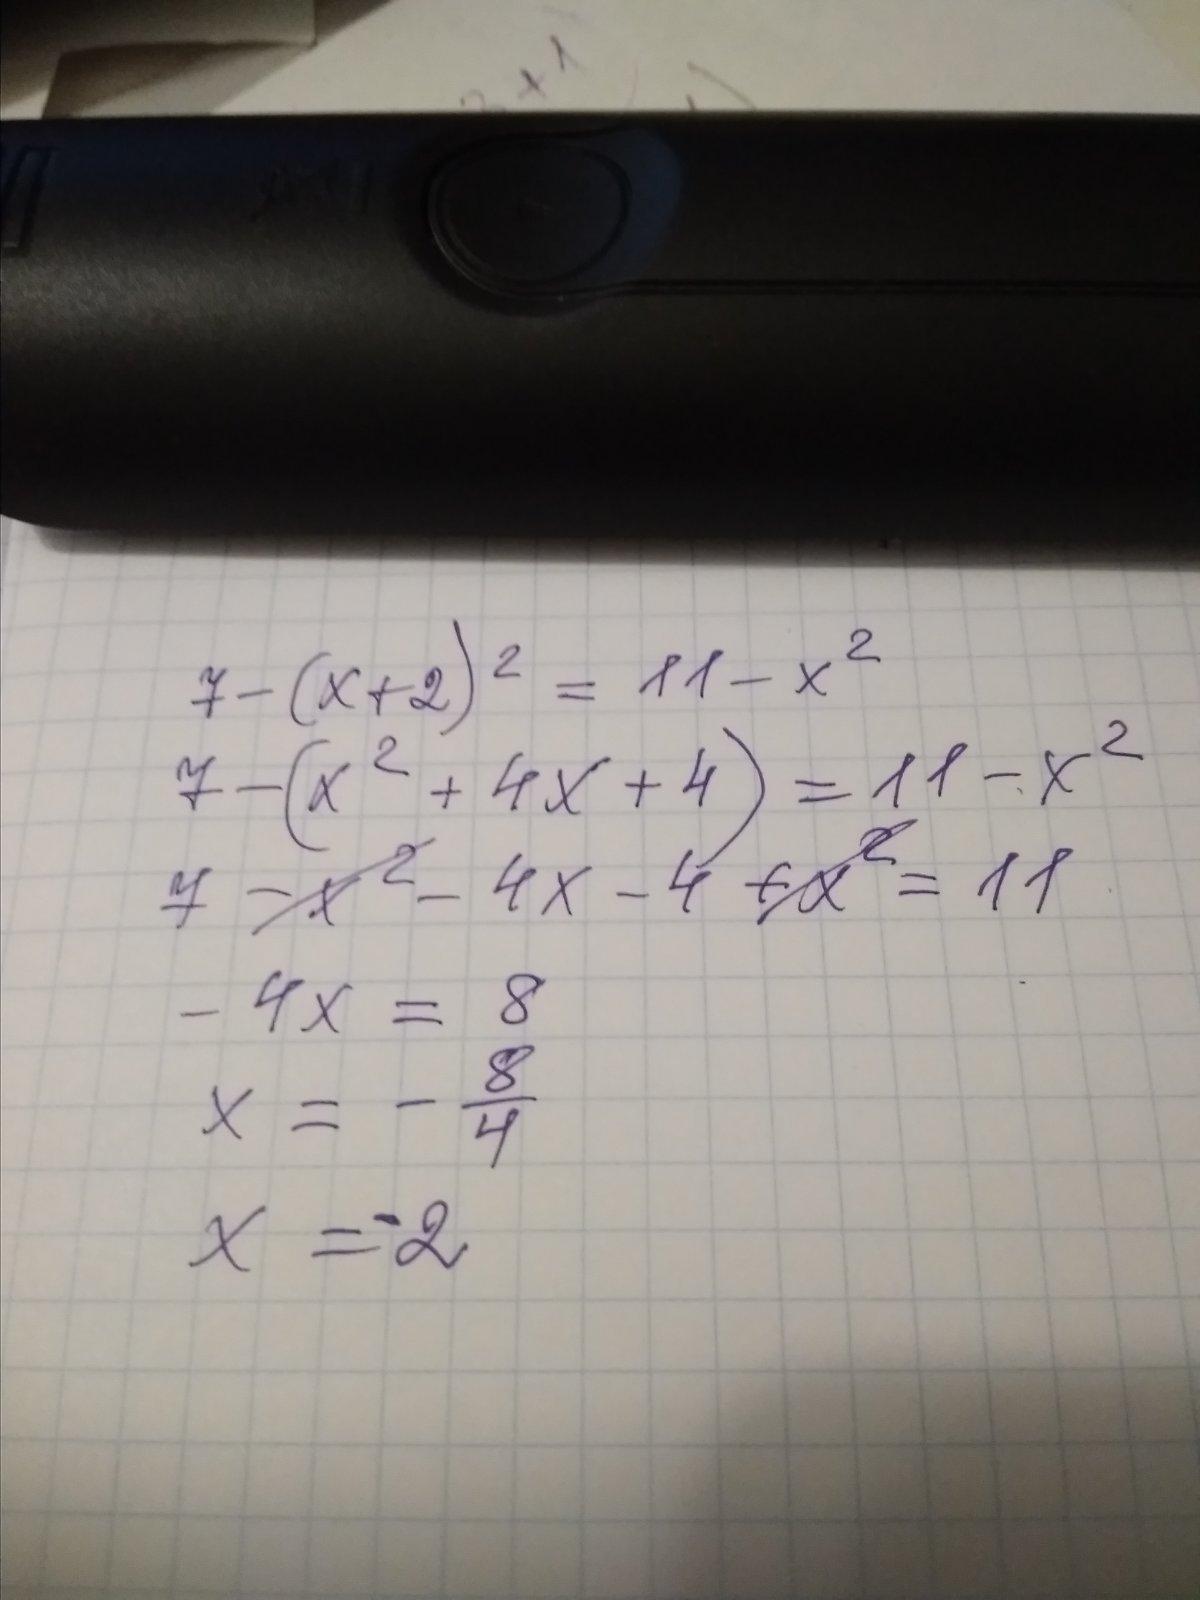 7-(x+2)² = 11-x²
7-(x²+4x+4) = 11-x²
7-x²-4x-4+x² = 11
-4x = 8
x = -8/4
x = -2